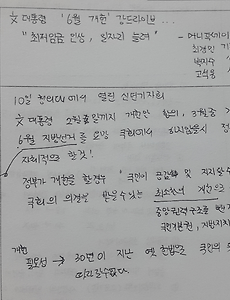 文대통령 '6월 개헌' 강드라이브...
"최저임금 인상, 일자리 늘려" - 머니
최경인 기
박지수
고석용
10일 청와대에서 열린 신년기자회
文 대통령 2월 중 말까지 개헌안 합의, 3월 중
6월 지방선거를 국회에서 하지않을시
자체적으로 할 것!
정부가 개헌을 할경우 국민이 공감하고 지지할 수
국회의 의결을 받을 수 있는 최소한의 개헌으로
중앙권력구조를
국민기본권, 지방자치
개헌 필요성 → 30년이 지난 옛 헌법으로 국민의
따라갈수없다.